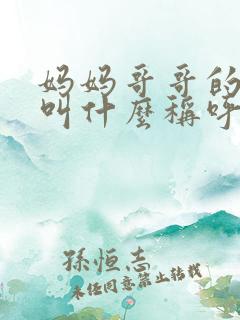 妈妈哥哥的
叫什麼稱呼
孫恒志
未经同意禁止转载